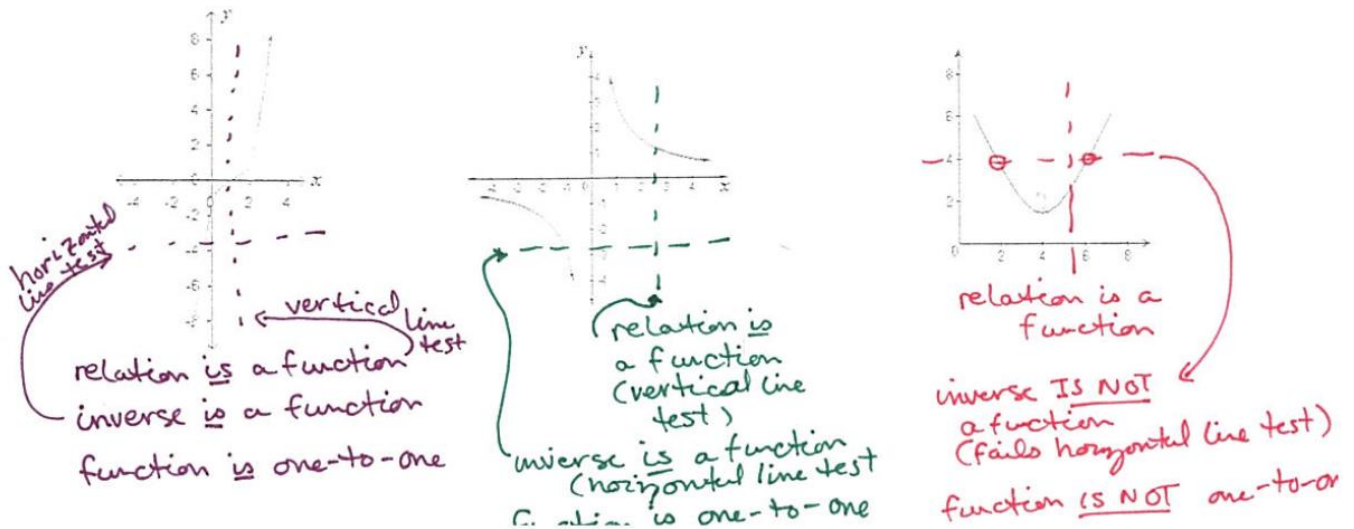 y
8
6
4
2
-4
-2
0
2
4
x
-2
-4
-6
horizontal
line test
vertical
line
test
relation is a function
inverse is a function
function is one-to-one
y
4
x
relation is
a function
(vertical line
test)
inverse is a function
(horizontal line test
is one-to-one
8
6
4
2
0
4
6
8
relation is a
function
inverse IS NOT
a function
(fails horizontal line test)
function IS NOT one-to-on